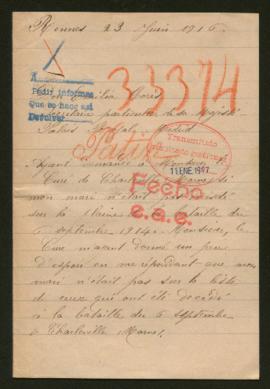 Rennes 23 Juin 1916.
33374
A
Pedir informes
Que se haga así
Devolver
Emilio
Secrétaire particulier de sa Majesté
Palais Madrid
Transmitido
11 ENE 1917
Ayant demandé à Monsieur
Curé de Charleville Marne si
mon mari n'était pas
sur la bataille du
Fecho
e.a.e.
6 septembre 1914. Monsieur le
Curé m'avait donné un peu
d'espoir en me répondant que mon
mari n'était pas sur la liste
de ceux qui ont été décédé
à la bataille du 6 septembre
à Charleville Marne.